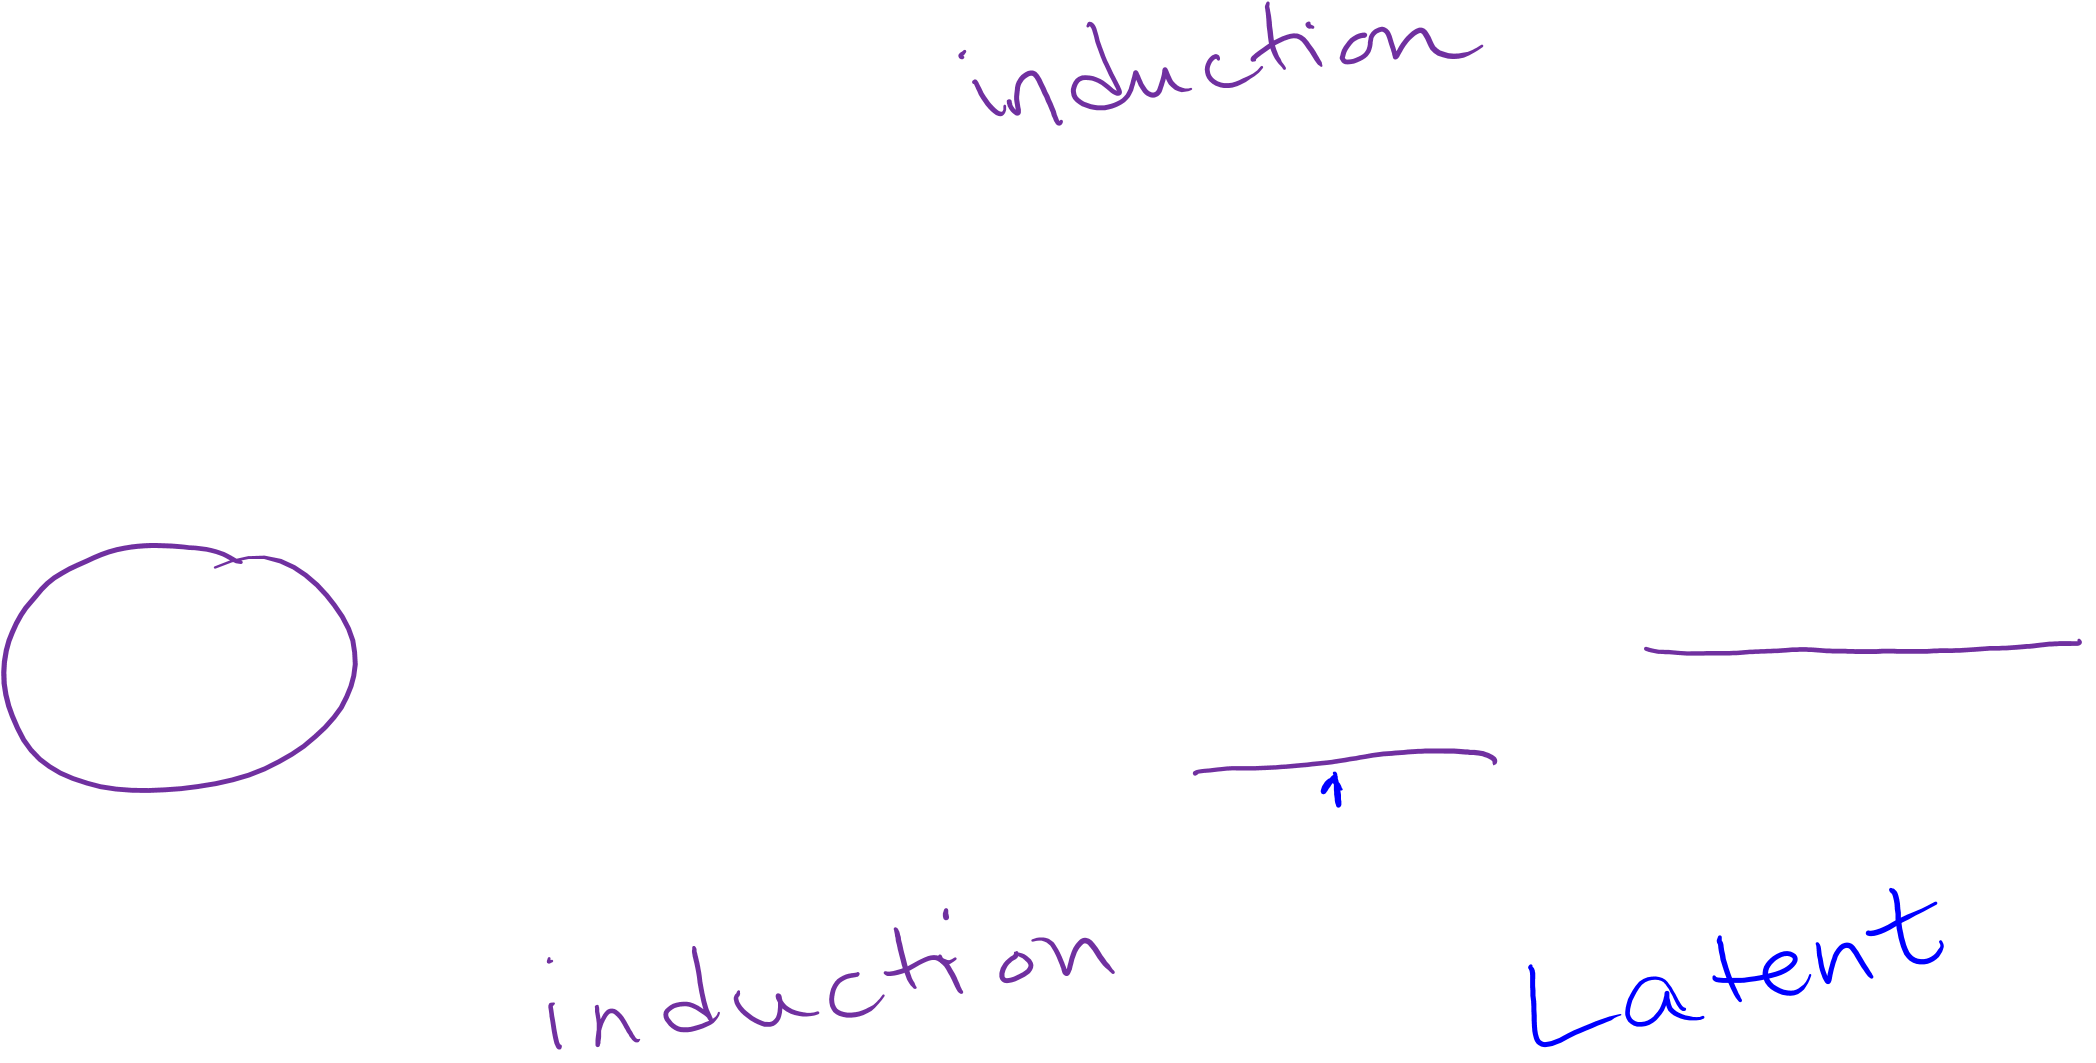 induction
induction
Latent